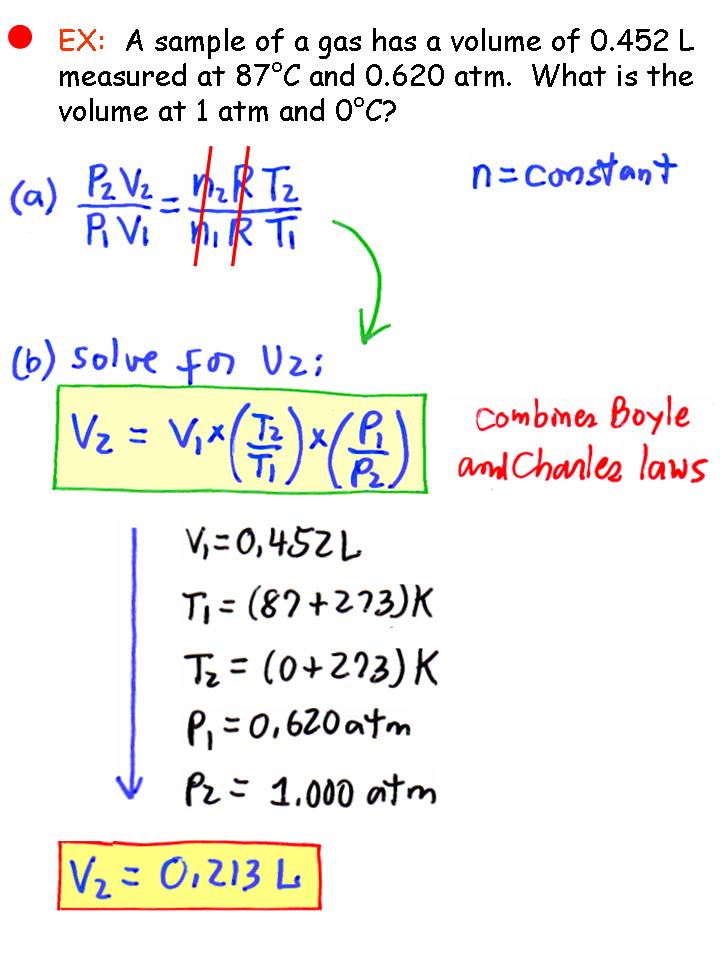 EX: A sample of a gas has a volume of 0.452 L
measured at 87°C and 0.620 atm. What is the
volume at 1 atm and 0°C?
(a) P₂V₂/P₁V₁ = n₂RT₂/n₁RT₁
n = constant
(b) solve for V₂:
V₂ = V₁ × (T₂/T₁) × (P₁/P₂)
Combines Boyle
and Charles laws
V₁ = 0.452 L
T₁ = (87 + 273) K
T₂ = (0 + 273) K
P₁ = 0.620 atm
P₂ = 1.000 atm
V₂ = 0.213 L